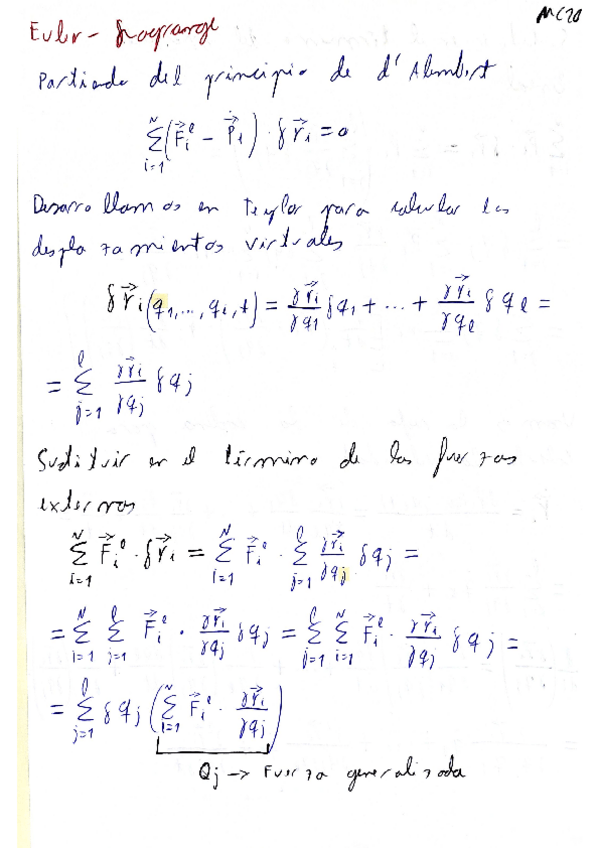 MC20
Euler-Lagrange
Partiendo del principio de d'Alembert
∑_{i=1}^{N} (F⃗_i^e − P⃗_i) · δr⃗_i = 0
Desarrollamos en Taylor para calcular los
desplazamientos virtuales
δr⃗_i(q_1, ..., q_l, t) = ∂r⃗_i/∂q_1 δq_1 + ... + ∂r⃗_i/∂q_l δq_l =
= ∑_{j=1}^{l} ∂r⃗_i/∂q_j δq_j
Sustituir en el término de las fuerzas
externas
∑_{i=1}^{N} F⃗_i^e · δr⃗_i = ∑_{i=1}^{N} F⃗_i^e · ∑_{j=1}^{l} ∂r⃗_i/∂q_j δq_j =
= ∑_{i=1}^{N} ∑_{j=1}^{l} F⃗_i^e · ∂r⃗_i/∂q_j δq_j = ∑_{j=1}^{l} ∑_{i=1}^{N} F⃗_i^e · ∂r⃗_i/∂q_j δq_j =
= ∑_{j=1}^{l} δq_j (∑_{i=1}^{N} F⃗_i^e · ∂r⃗_i/∂q_j)
Q_j → Fuerza generalizada